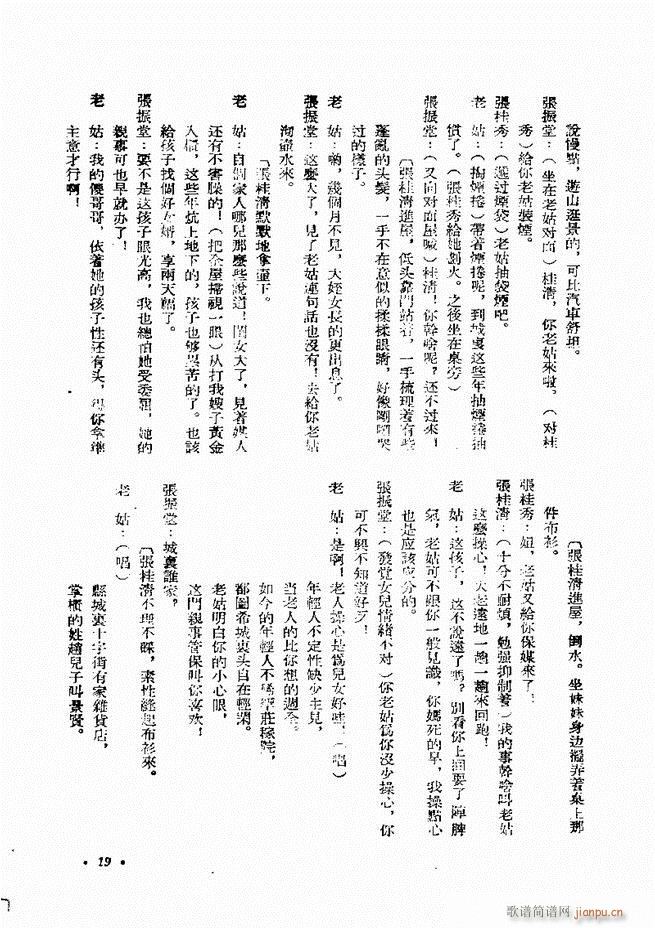 說慢點，遊山逛景的，可比汽車舒坦。
張振堂：（坐在老姑对面）桂清，你老姑來啦，（对桂
秀）給你老姑裝煙。
張桂秀：（遞过煙袋）老姑抽袋煙吧。
老　姑：（掏煙捲）帶着煙捲呢，到城裏这些年抽煙捲抽
慣了。（張桂秀給她划火。之後坐在桌旁）
張振堂：（又向对面屋喊）桂清！你幹啥呢？还不过來！
〔張桂清進屋，低头靠門站着，一手梳理着有些
蓬亂的头髮，一手不在意似的揉揉眼睛，好像剛哭
过的樣子。
老　姑：喲，幾個月不見，大姪女長的更出息了。
張振堂：这麼大了，見了老姑連句話也沒有！去給你老姑
沏壺水來。
〔張桂清默默地拿壺下。
老　姑：自個家人哪兒那麼些說道！閨女大了，見着媒人
还有不害臊的！（把全屋掃視一眼）从打我嫂子黃金
入櫃，这些年炕上地下的，孩子也够受苦的了。也該
給孩子找個好女婿，享兩天福了。
張振堂：要不是这孩子眼光高，我也總怕她受委屈，她的
親事可也早就办了！
老　姑：我的傻哥哥，依着她的孩子性还有头，得你拿準
主意才行啊！
〔張桂清進屋，倒水。坐妹妹身边擺弄着桌上那
件布衫。
張桂秀：姐，老姑又給你保媒來了。
張桂清：（十分不耐煩，勉强抑制着）我的事幹啥叫老姑
这麼操心！大老遠地一趟一趟來回跑！
老　姑：这孩子，这不說遠了嗎？別看你上回耍了陣脾
氣，老姑可不跟你一般見識，你媽死的早，我操點心
也是应該应分的。
張振堂：（發覺女兒情緒不对）你老姑爲你沒少操心，你
可不興不知道好歹！
老　姑：是啊！老人操心是爲兒女好哇，（唱）
年輕人不定性缺少主見，
当老人的比你想的週全。
如今的年輕人不稀罕莊稼院，
都圖希城裏头自在輕閑。
老姑明白你的小心眼，
这門親事管保叫你喜欢！
張振堂：城裏誰家？
〔張桂清不理不睬，索性縫起布衫來。
老　姑：（唱）
縣城裏十字街有家雜貨店，
掌櫃的姓趙兒子叫景賢。
• 19 •
歌谱简谱网 jianpu.cn